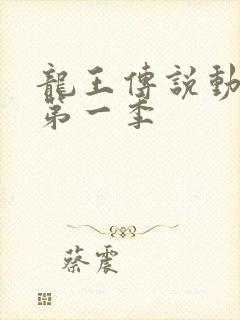 龍王傳說動
第一季
蔡震